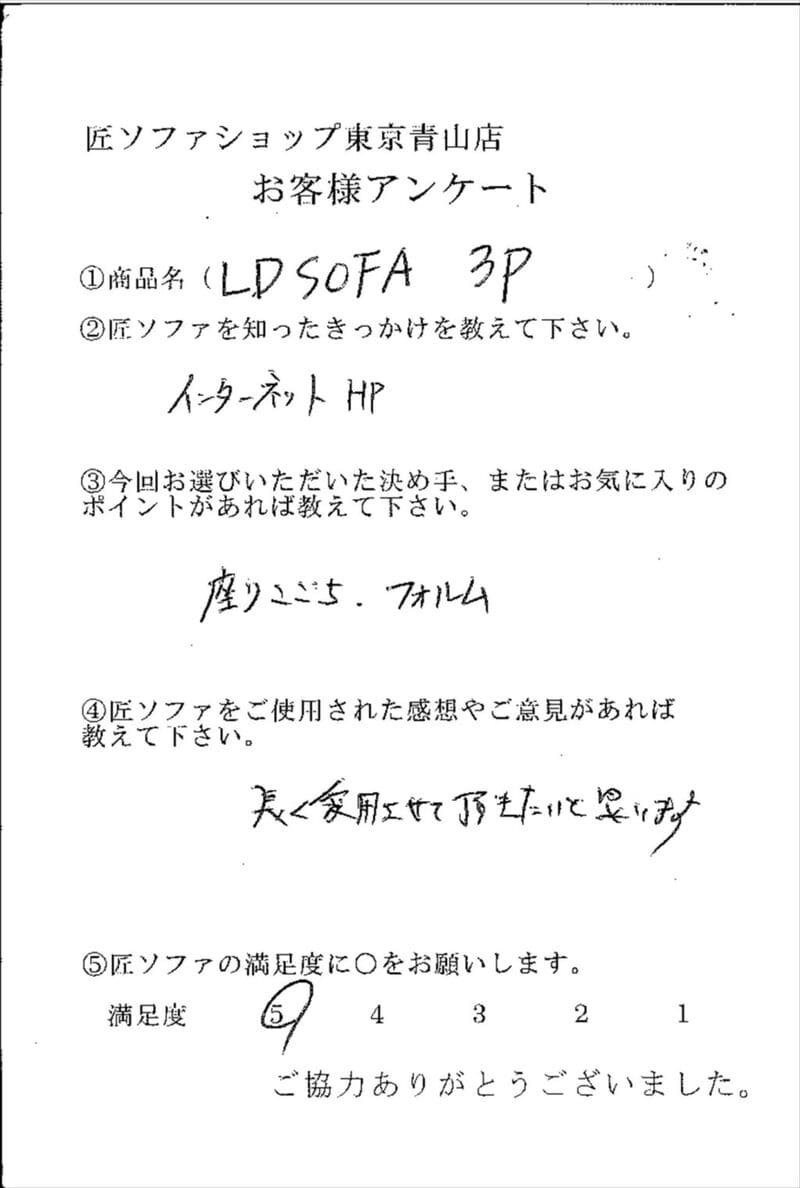 匠ソファショップ東京青山店
お客様アンケート
①商品名（LD SOFA 3P）
②匠ソファを知ったきっかけを教えて下さい。
インターネット HP
③今回お選びいただいた決め手、またはお気に入りの
ポイントがあれば教えて下さい。
座りごこち. フォルム
④匠ソファをご使用された感想やご意見があれば
教えて下さい。
長く愛用させて頂きたいと思います
⑤匠ソファの満足度に〇をお願いします。
満足度 5 4 3 2 1
ご協力ありがとうございました。